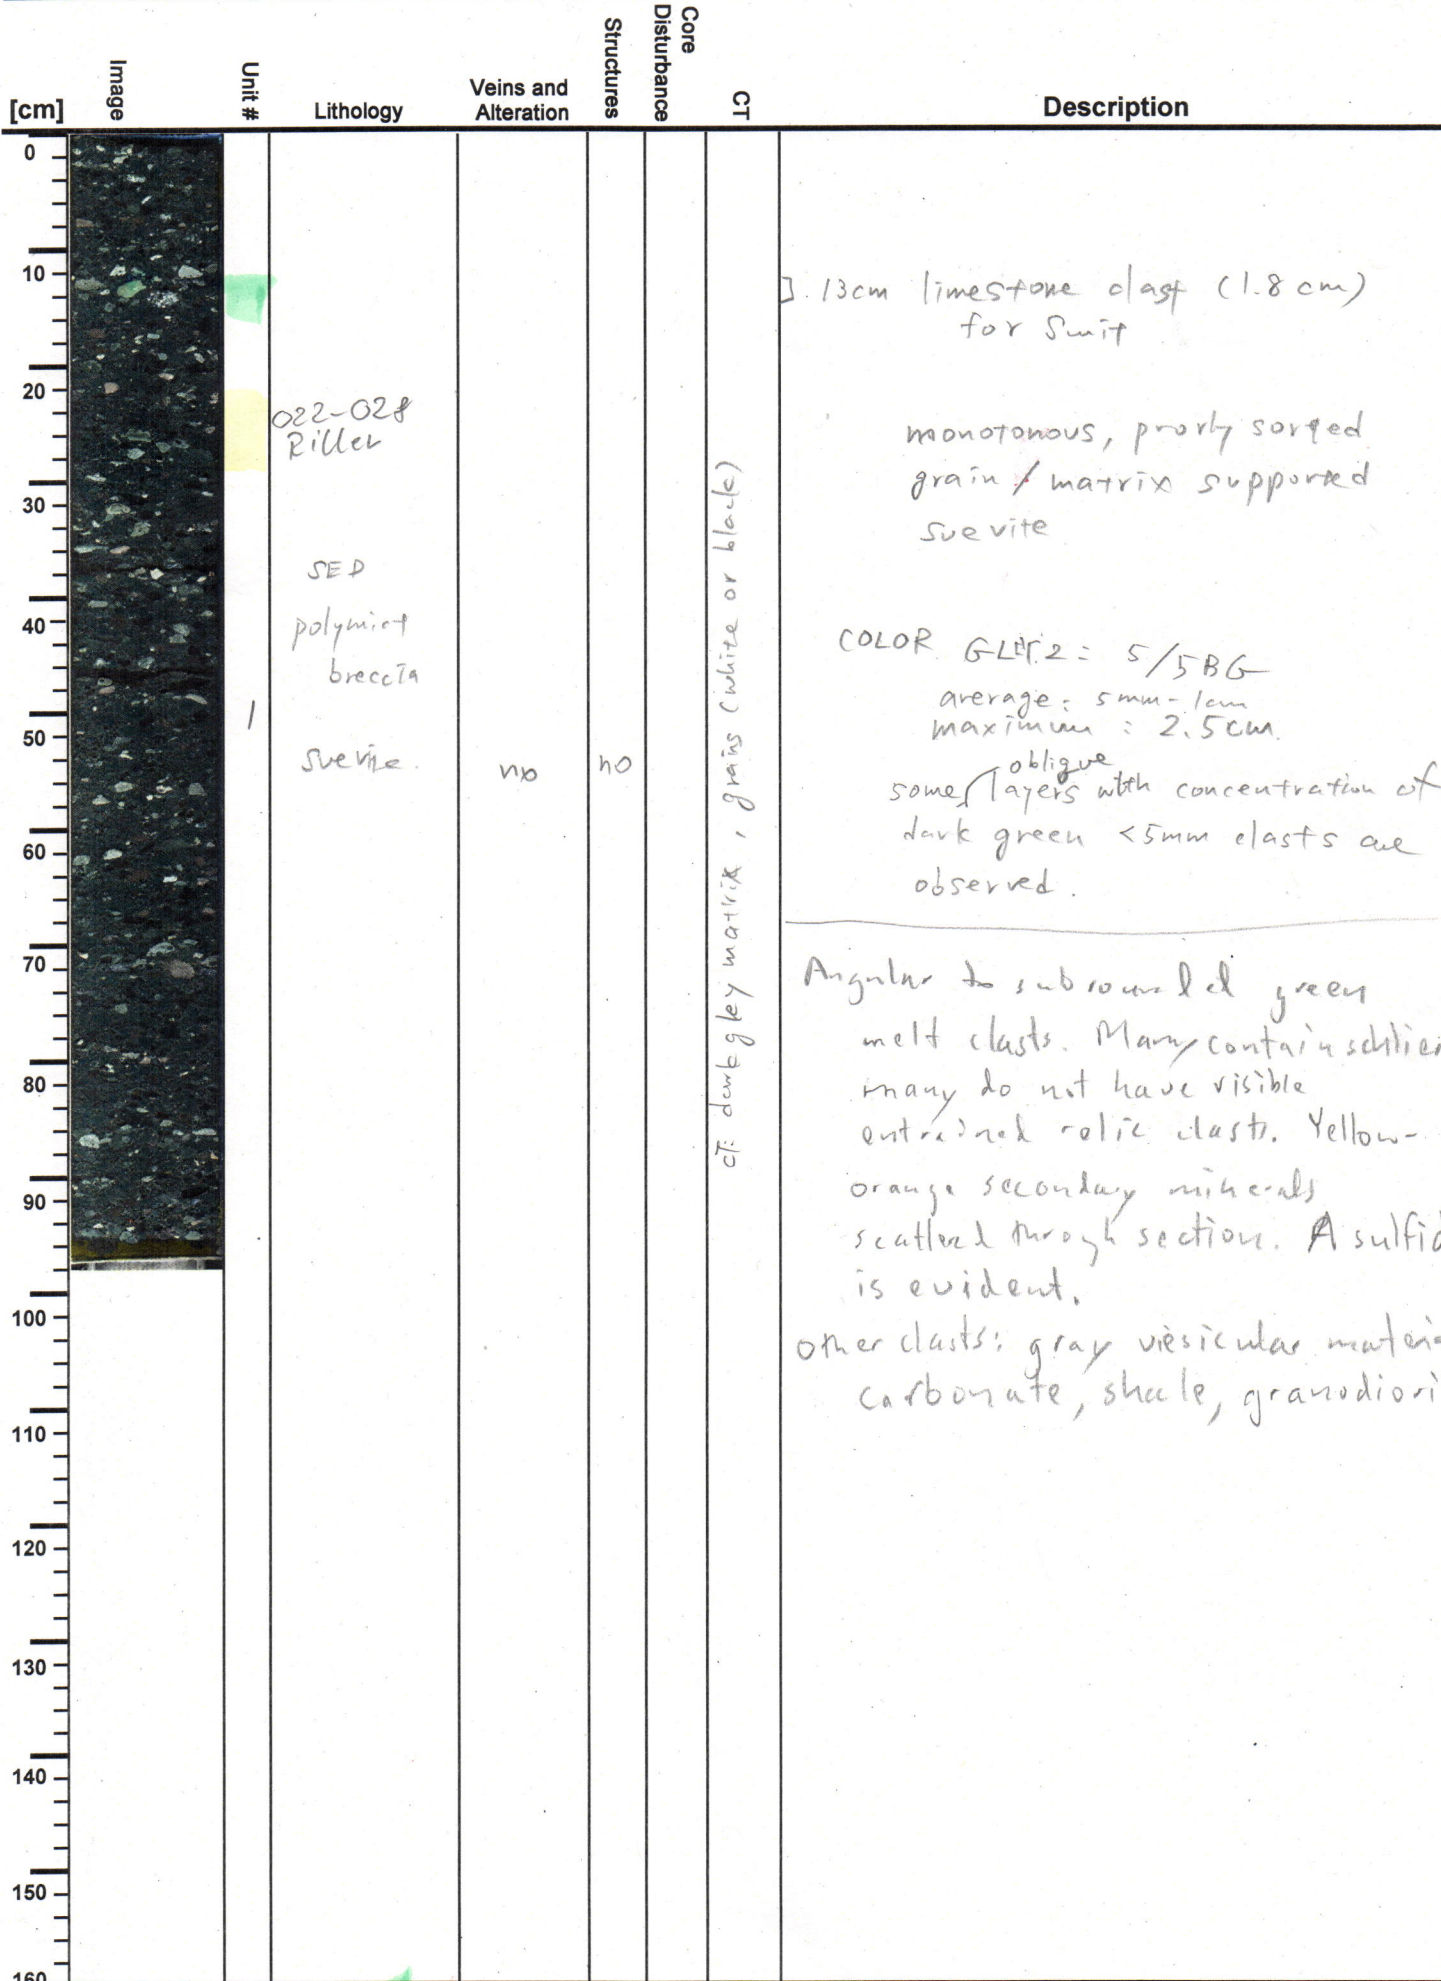 [cm]
Image
Unit #
Lithology
Veins and
Alteration
Structures
Core
Disturbance
CT
Description
0
10
20
30
40
50
60
70
80
90
100
110
120
130
140
150
160
022-028
Riller
SED
polymict
breccia
suevite.
1
no
no
CT: dark grey matrix, grains (white or black)
]. 13cm limestone clast (1.8 cm)
for Smit
monotonous, prorly sorted
grain / matrix supported
suevite
COLOR GLEY.2 = 5/5BG
average: 5mm-1cm
maximum : 2.5cm.
oblique
some layers with concentration of
dark green <5mm clasts are
observed.
Angular to subrounded green
melt clasts. Many contain schlier
many do not have visible
entrained relic clasts. Yellow-
orange secondary minerals
scattered through section. A sulfid
is evident.
other clasts: gray viesicular materia
carbonate, shale, granodiori